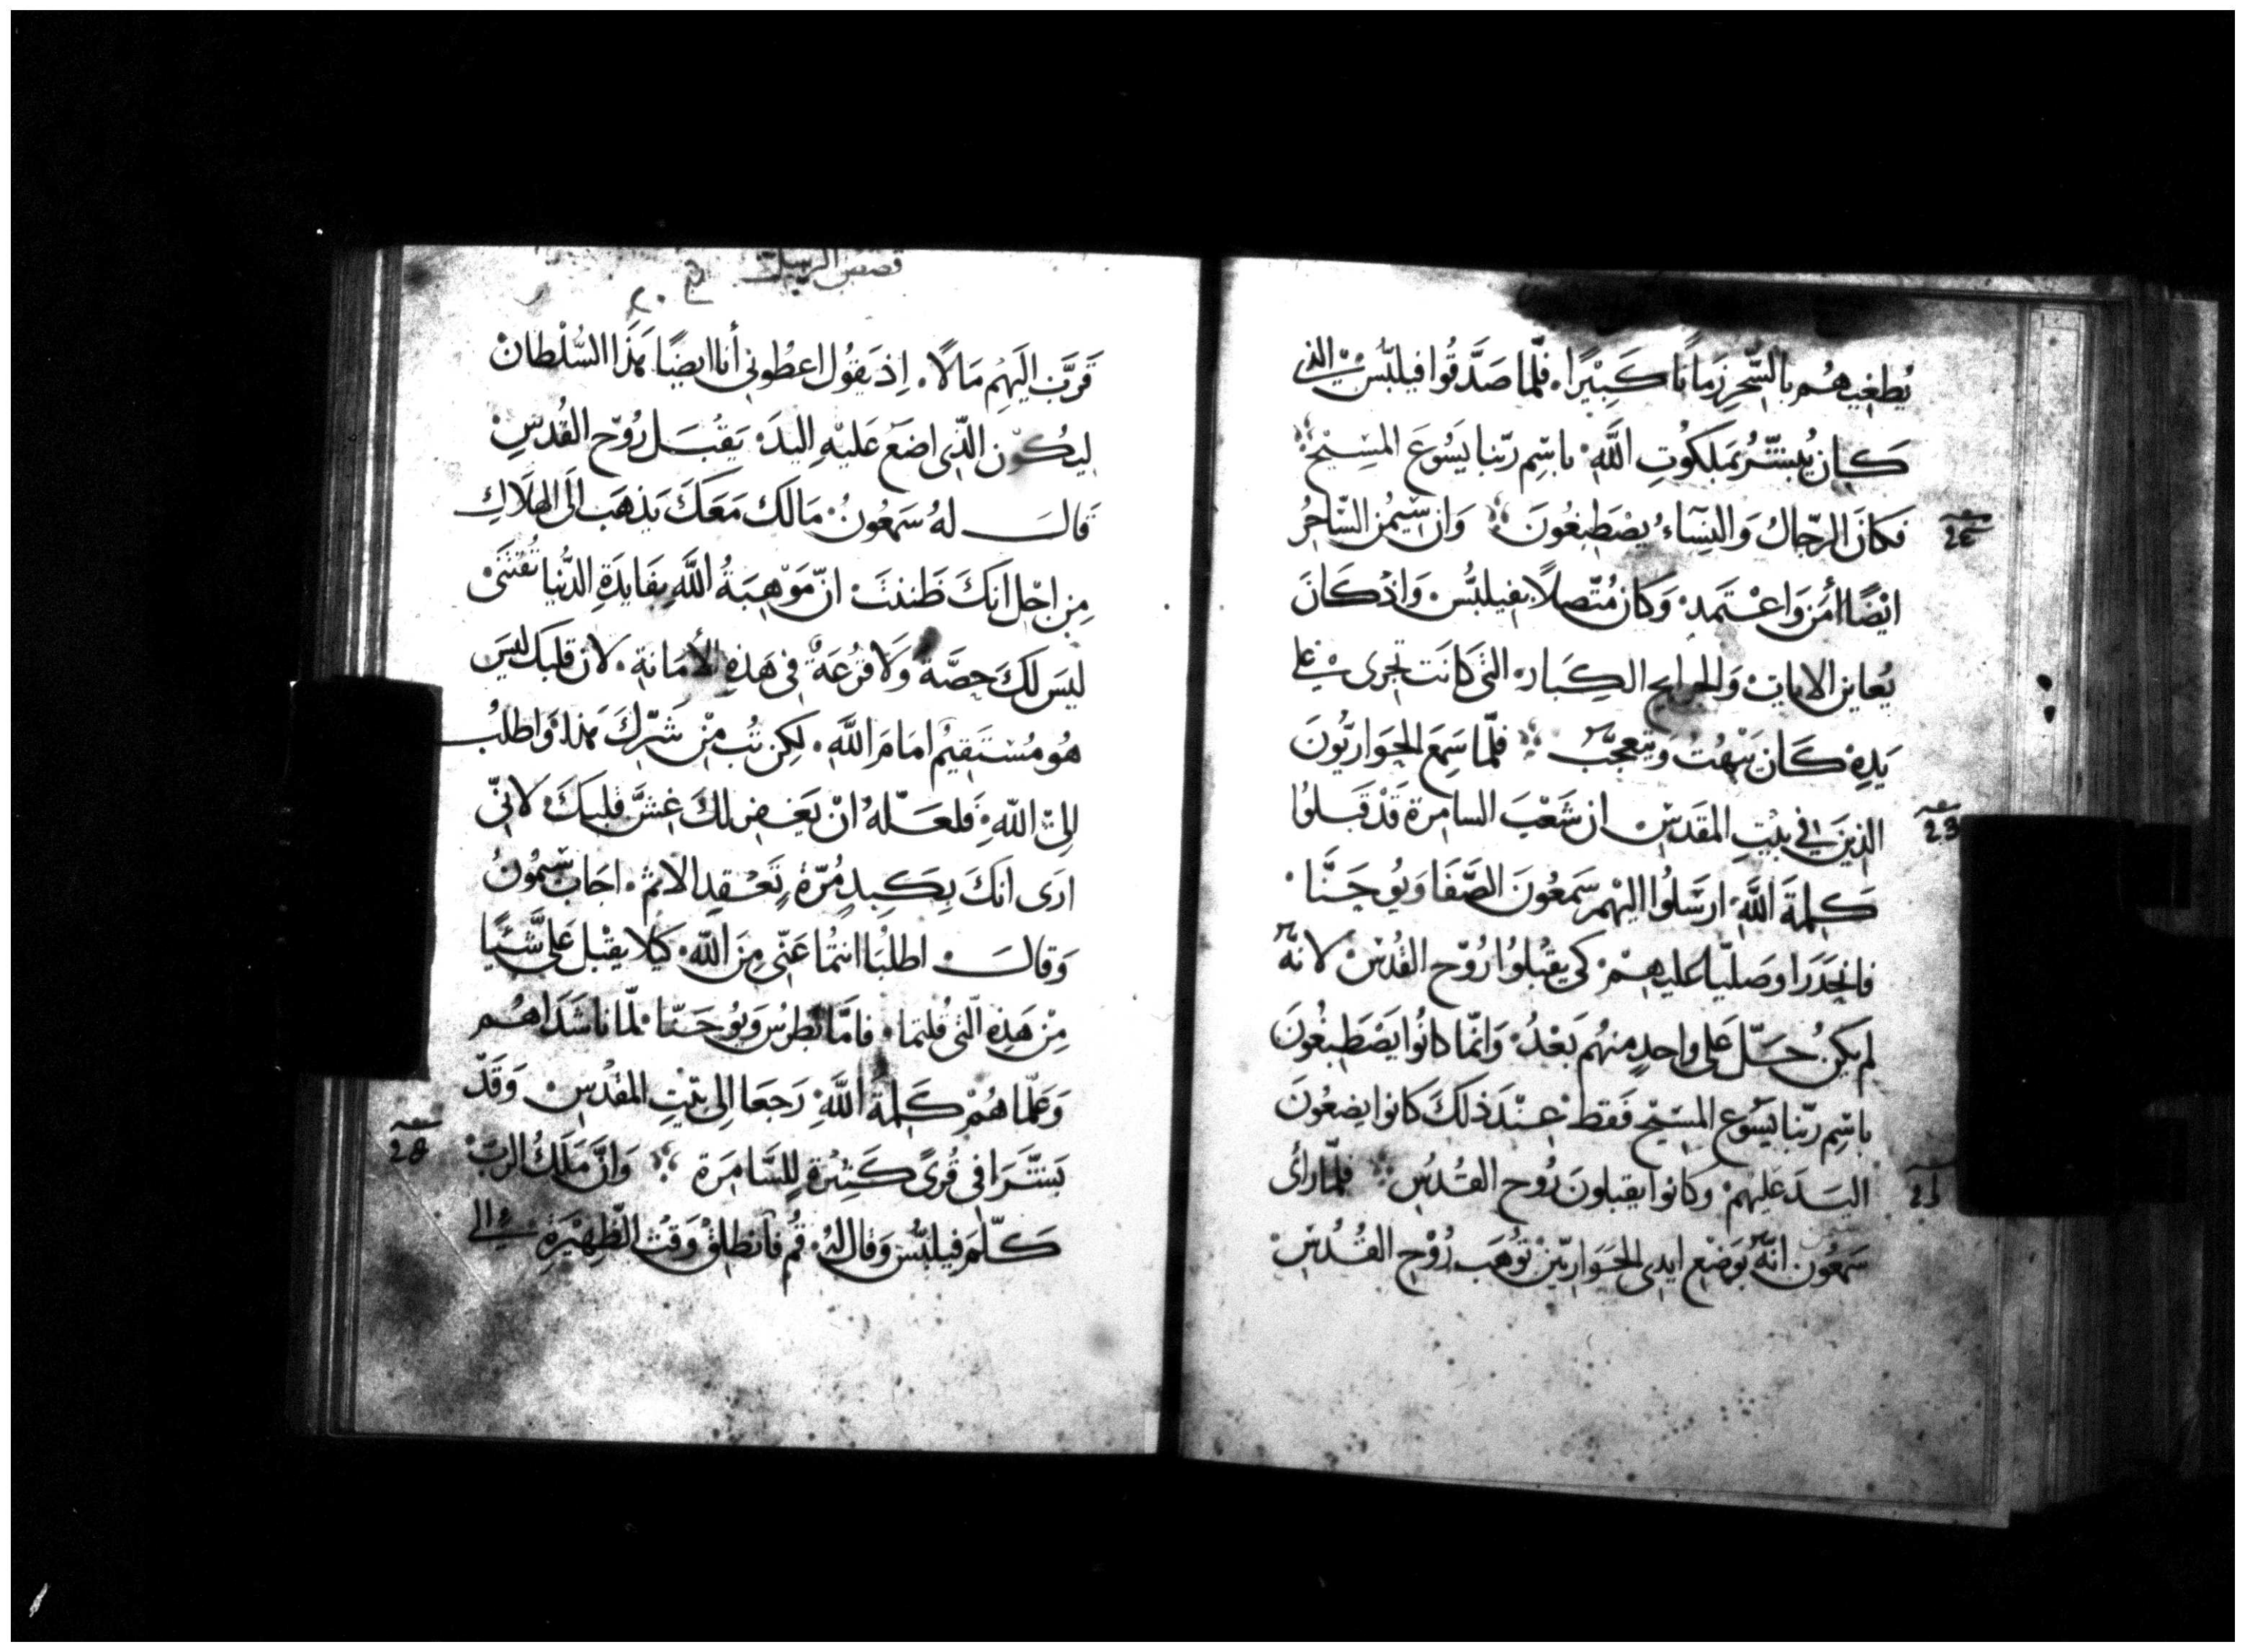 يُطغيهُم بالسِّحرِ زَمانًا كَبِيْرًا. فلمّا صَدَّقُوا فيلبُّسَ الذي
كَان يُبشّرُ بمَلكُوتِ اللَّهِ باسْمِ ربّنا يَسُوعَ المسِيْح
فَكانَ الرّجالُ وَالنِسَاءُ يصْطبغُونَ وَان سِيْمُن السّاحرُ
ايْضًا أمَنَ وَاعْتَمدَ وَكان مُتّصلاً بفيلبُّسْ وَاذْ كَانَ
يُعاين الايات وَالجرايح الكِبَار التى كَانَت تجرى على
يَدِهِ كَان يَبْهتُ وَيتعجّب فلمّا سَمِعَ الحَوَاريُّونَ
الذينَ في بيْتِ المقَدسْ ان شَعْبَ السامرة قَدْ قَبلوُا
كلِمَةَ اللَّهِ ارسَلُوا اليْهم سَمعُونَ الصَّفَا وَيُوحَنَّا.
فانحَدَرَا وصَليّا عليهمْ كي يقبُلوُا رُوْح القُدسْ لانّهُ
لم يكنُ حَلّ عَلى واحدٍ منهُم بَعْدُ وَانّما كانُوا يَصْطَبغُونَ
باسْمِ ربّنا يَسُوع المسِيْح فَقط عنْدَ ذلكَ كانوا يضعُونَ
اليَدَ عَليهمْ وكانوا يقبلونَ رُوح القُدُسِ فلمّا رأى
سَمعُون انّهُ بوَضْعِ ايدى الحَوَاريّيْن تُوْهَب رُوْح القُدُسْ
قصص الرسل
قَرَّبَ اليَهِم مَالاً. اِذ يَقوُل اعطُونى أنا ايضًا هَذَا السُّلْطانْ
ليكُوْن الذّى اضعَ عَليْهِ اليدَ يَقْبَل رُوْح القُدسِ
قَالَ لهُ سَمعُونُ مَالك مَعَكَ يَذهَب الَى الهَلاَكِ
مِن اجْل انكَ ظَننتَ انّ مَوْهبَةُ اللَّهِ بفَايدَةِ الدُّنيا تُقتَنَىْ
ليسَ لكَ حِصَّة وَلا قرْعَةٌ فى هَذهِ الأمَانة. لان قَلبَك ليسَ
هُو مُسْتقيْمُ امَامَ اللَّه. لكِن تُب مِنْ شَرّكَ هَذا وَاطلُبْ
الىَ اللّهِ فَلعَلّهُ انْ يَغفِر لكَ غشَّ قَلبكَ لانّى
ارَى انكَ بكَبِدٍ مُرّةٍ وَعُقدِ الاثم. اجَابَ سِيْمُونُ
وَقالَ اطلبُا انتُما عَنّى مِنَ اللّه كَيْلا يقْبل عَلىَّ شَيئًا
مِنْ هَذِهِ الّتى قُلتما. فامَّا بُطرُس وَيُوحَنّا لمّا ناشَدَاهُم
وَعَلّماهُمْ كَلِمَةَ اللَّهِ رَجَعَا الِى بيْتِ المقْدسِ وَقَدْ
بَشّرَا فى قُرىً كَثِيْرةٍ لِلسَّامِرَة وَانَّ مَلكُ الربّ
كَلّمَ فيلبُّس وَقال لهُ قُم فانطَلقْ وَقتَ الظّهِيْرَةِ الى